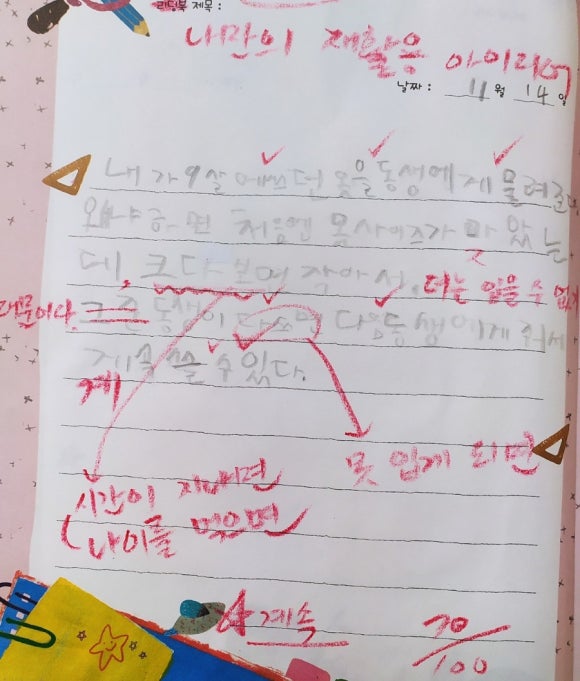 리딩북 제목 :
나만의 재활용 아이디어
날짜 : 11 월 14 일
내가 9살 때 쓰던 옷을 동생에게 물려준다
왜냐하면 처음엔 옷사이즈가 맞았는
데, 크다 보면 작아서. 더는 입을 수 없기
때문이다. 그 동생이 다 쓰면 다음동생에게 줘서
계속 쓸 수 있다.
계
못 입게 되면
시간이 지나면
나이를 먹으면
계속
70/100